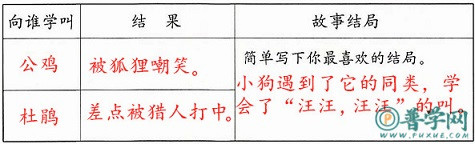 向谁学叫 结 果 故事结局
公鸡 被狐狸嘲笑。 简单写下你最喜欢的结局。
小狗遇到了它的同类，学
杜鹃 差点被猎人打中。 会了“汪汪，汪汪”的叫
普学网
WWW.FUXUE.COM